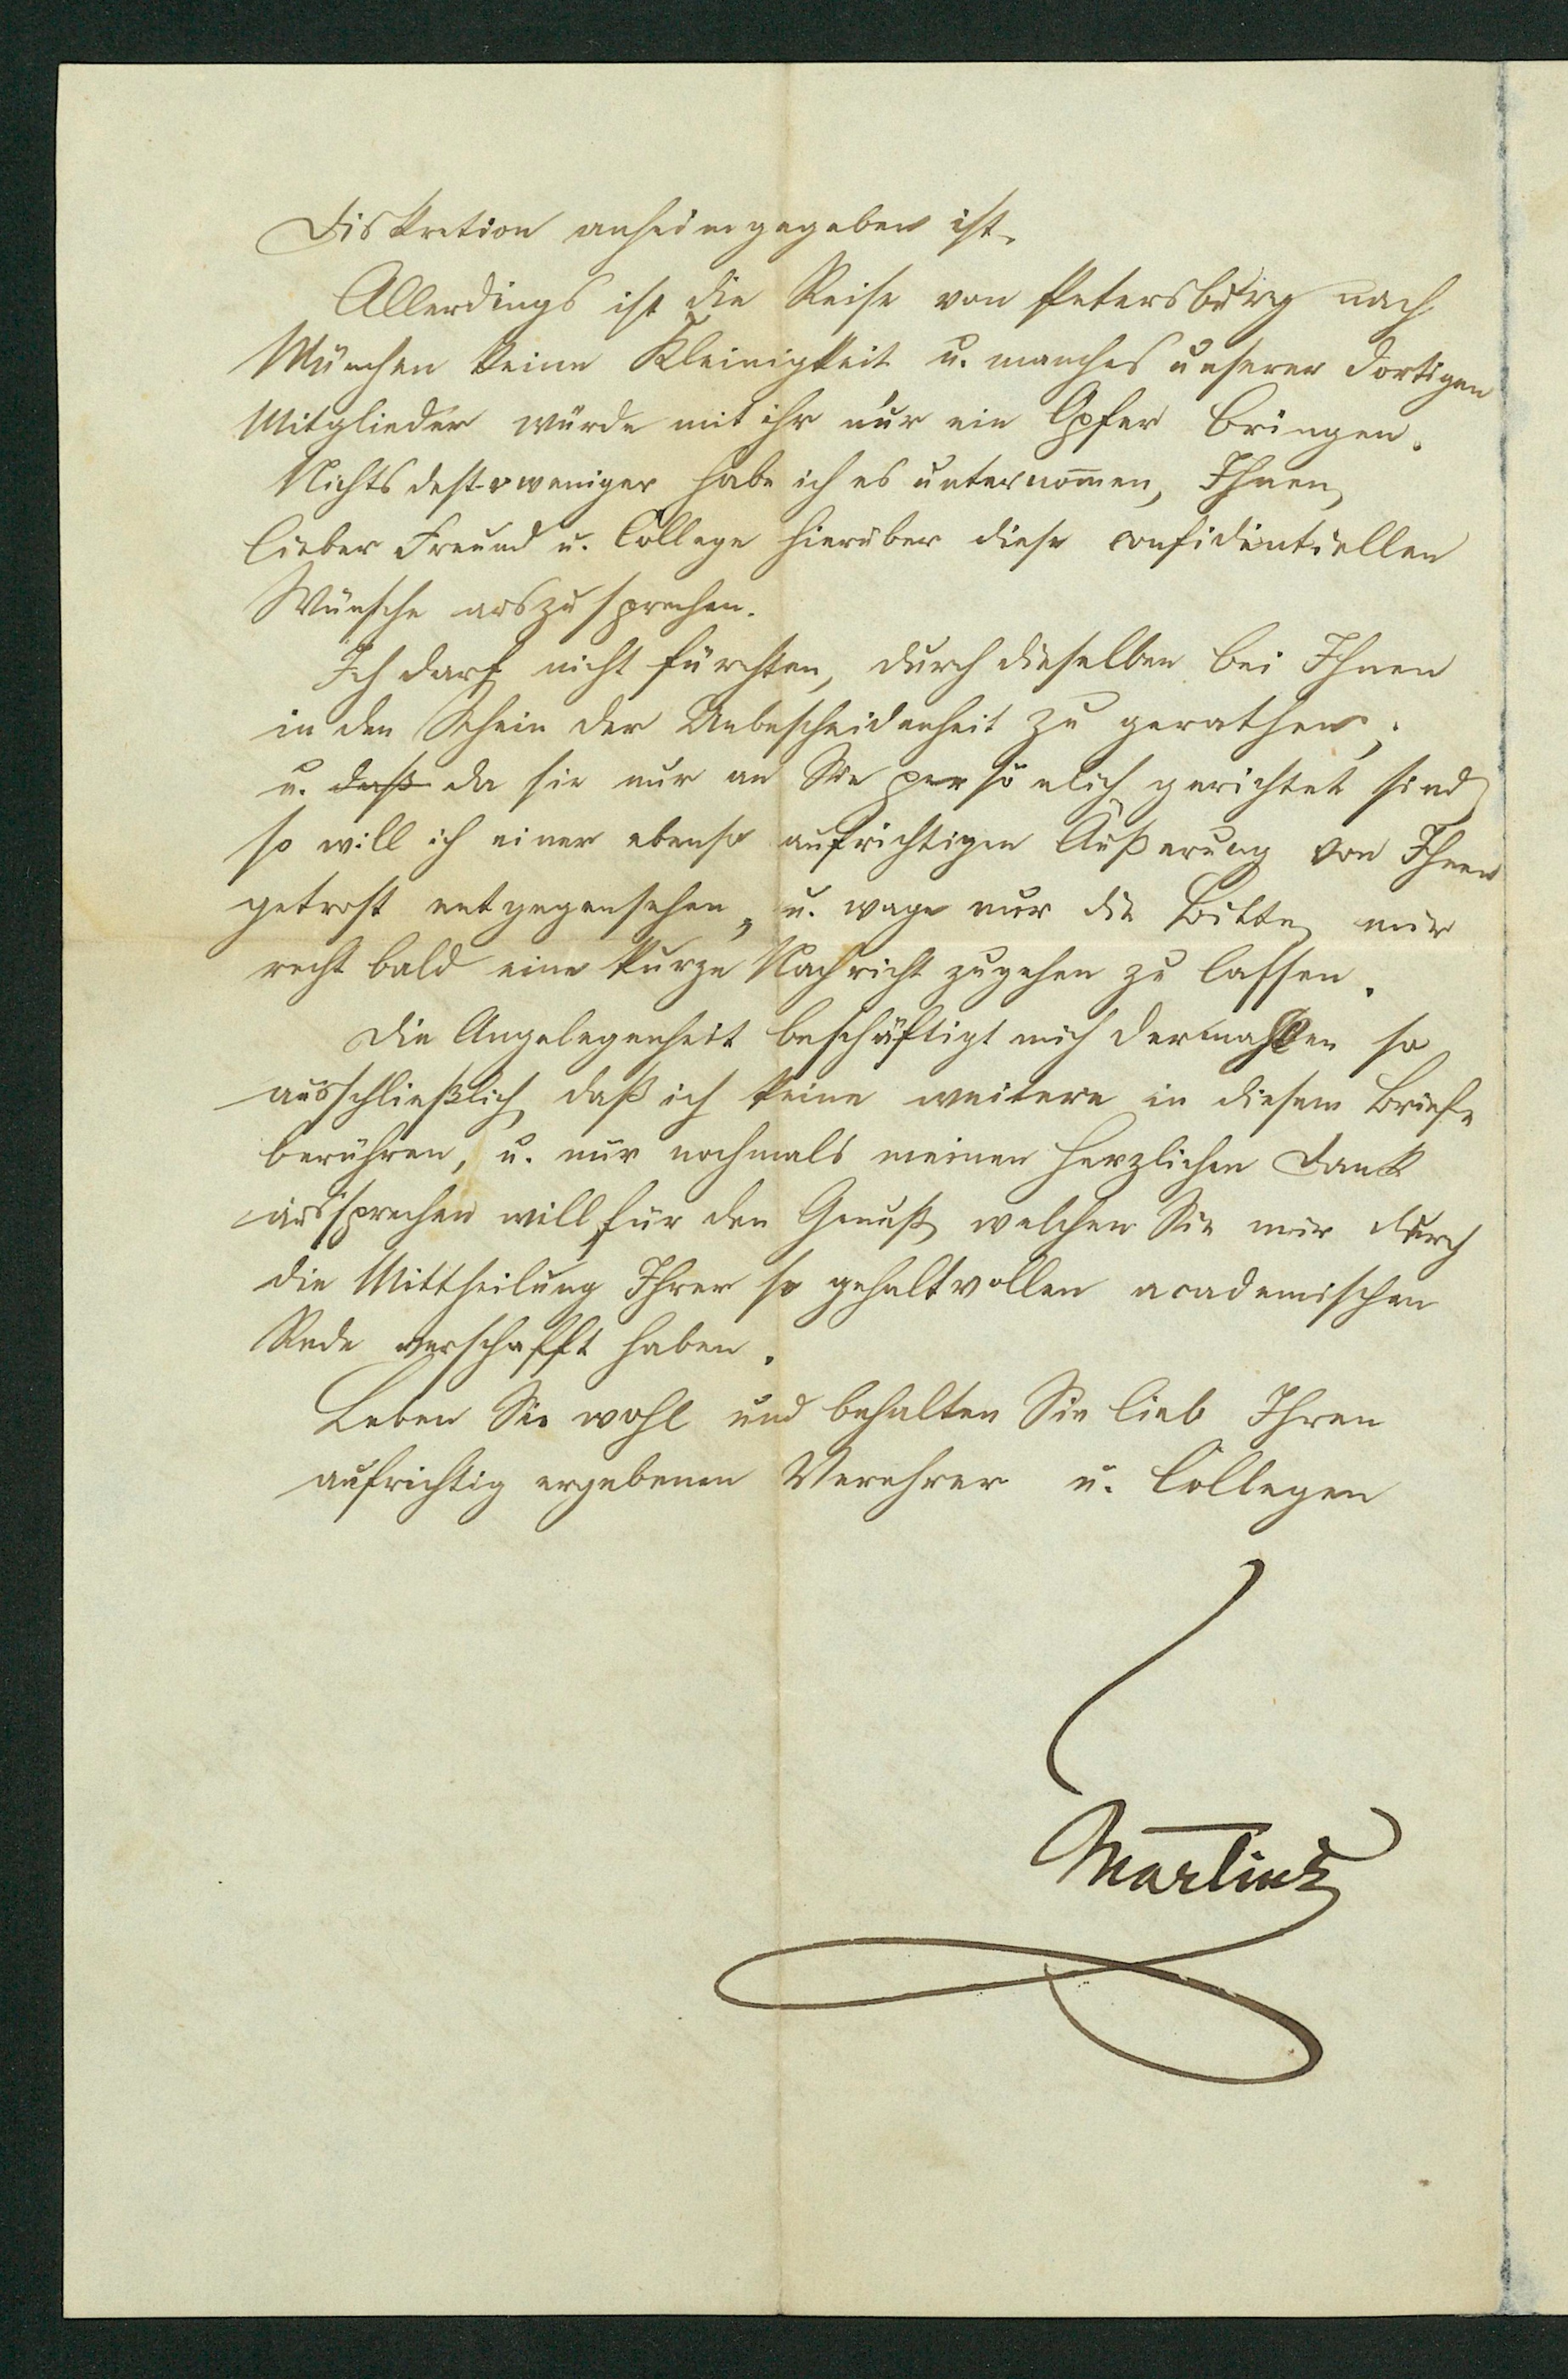 Diskretion anheimgegeben ist.
Allerdings ist die Reise von Petersburg nach
München keine Kleinigkeit u. manches unserer dortigen
Mitglieder würde mit ihr nur ein Opfer bringen.
Nichts destoweniger habe ich es unternom̄en, Ihnen,
lieber Freund u. College hierüber diese confidentiellen
Wünsche auszusprechen.
Ich darf nicht fürchten, durch dieselben bei Ihnen
in den Schein der Unbescheidenheit zu gerathen;
u. daß da sie nur an Sie persönlich gerichtet sind
so will ich einer ebenso aufrichtigen Äußerung von Ihnen
getrost entgegensehen, u. wage nur die Bitte, mir
recht bald eine kurze Nachricht zugehen zu lassen.
Die Angelegenheit beschäftigt mich dermahlen so
ausschließlich, daß ich keine weitere in diesem Briefe
berühren, u. nur nochmals meinen herzlichen Dank
aussprechen will, für den Genuß, welchen Sie mir durch
die Mittheilung Ihrer so gehaltvollen academischen
Rede verschafft haben.
Leben Sie wohl und behalten Sie lieb Ihren
aufrichtig ergebenen Verehrer u. Collegen
Martius